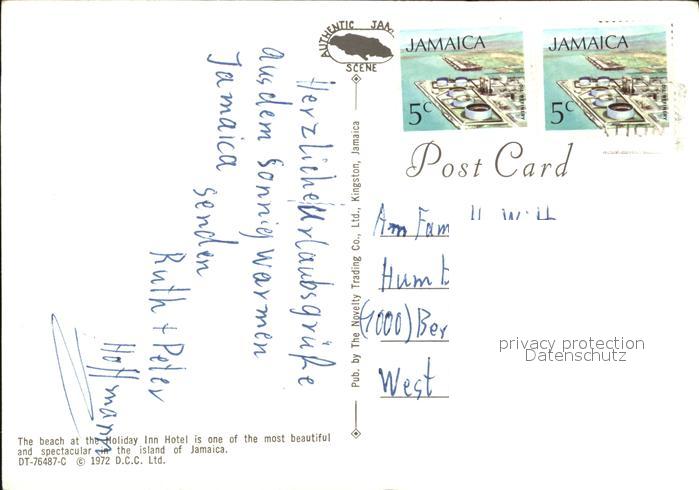 AUTHENTIC JAM.
SCENE
JAMAICA
5c
OIL REFINERY
JAMAICA
5c
OIL REFINERY
Post Card
Herzliche Urlaubsgrüße
aus dem sonnig warmen
Jamaica
senden
Ruth + Peter
Hoffmann
Pub. by The Novelty Trading Co., Ltd., Kingston, Jamaica
Am Fam
Hum
(1000) Ber
West
privacy protection
Datenschutz
The beach at the Holiday Inn Hotel is one of the most beautiful
and spectacular in the island of Jamaica.
DT-76487-C © 1972 D.C.C. Ltd.